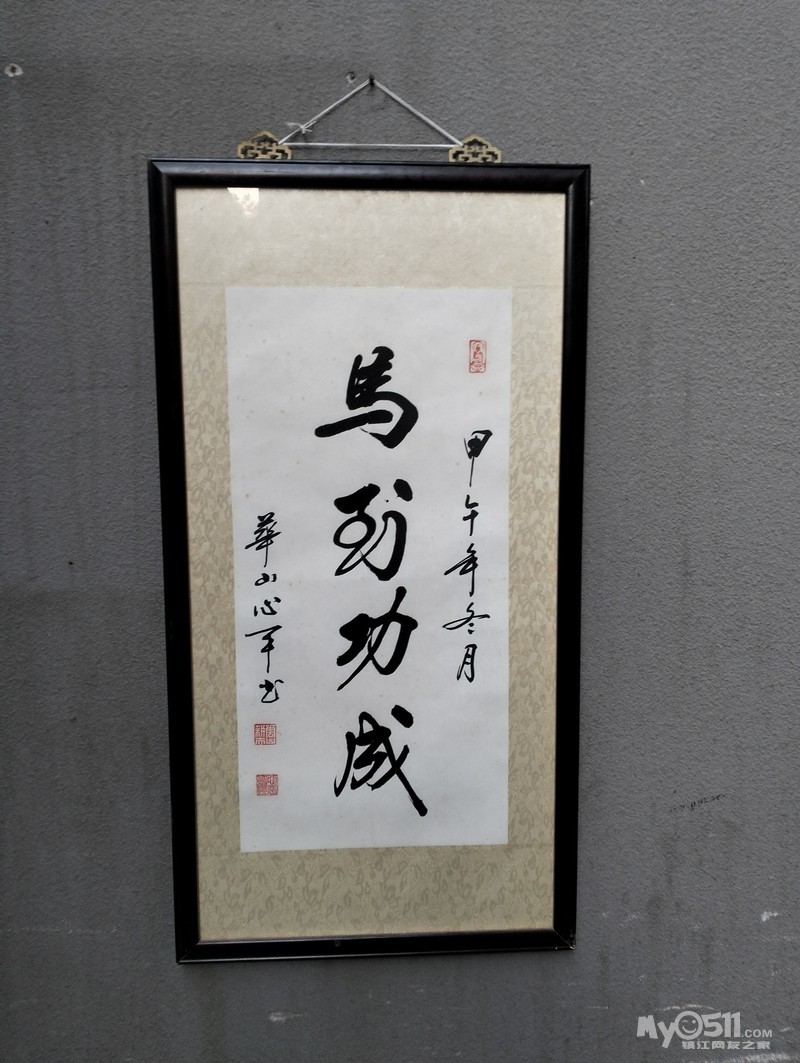 甲午年冬月
馬到功成
華山心平书
My0511.COM
镇江网友之家